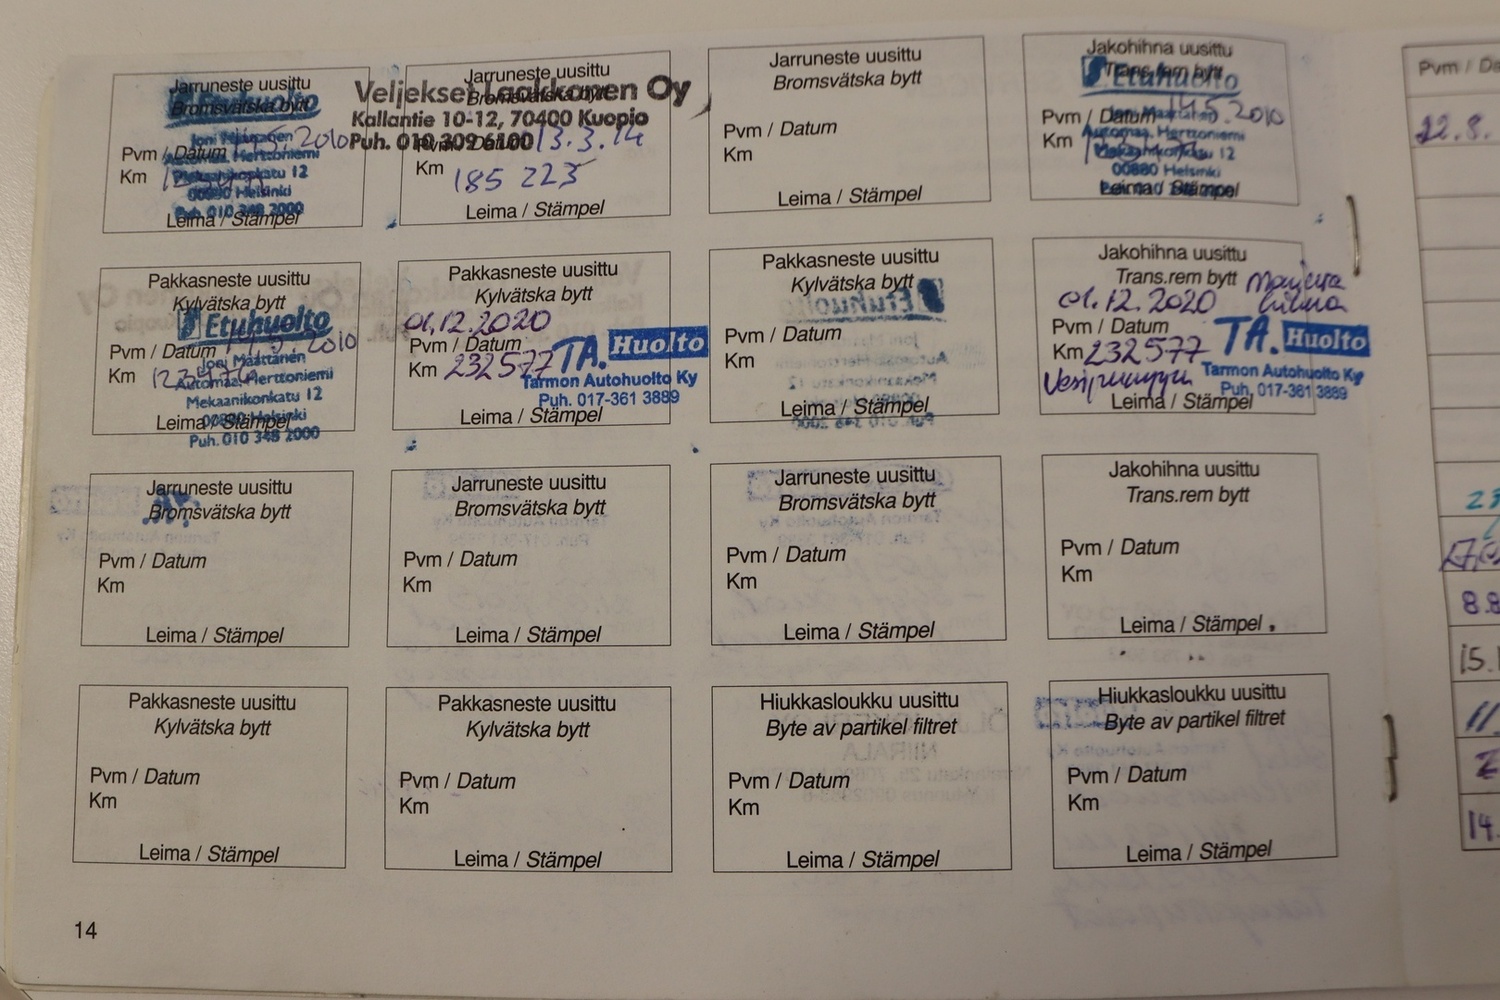 Jarruneste uusittu
Bromsvätska bytt
Etuhuolto
Automaa, Herttoniemi
Mekaanikonkatu 12
00880 Helsinki
Puh. 010 348 2000
Pvm / Datum
Km
Leima / Stämpel
Jarruneste uusittu
Bromsvätska bytt
Veljekset Laakkonen Oy
Kallantie 10-12, 70400 Kuopio
Puh. 010 309 6100
Pvm / Datum 13.3.14
Km 185 223
Leima / Stämpel
Jarruneste uusittu
Bromsvätska bytt
Pvm / Datum
Km
Leima / Stämpel
Jakohihna uusittu
Trans.rem bytt
Etuhuolto
Pvm / Datum 14.5.2010
Km
Automaa, Herttoniemi
Mekaanikonkatu 12
00880 Helsinki
Leima / Stämpel
Pakkasneste uusittu
Kylvätska bytt
Etuhuolto
Pvm / Datum 14.5.2010
Joni Määttänen
Km
Automaa, Herttoniemi
Mekaanikonkatu 12
00880 Helsinki
Leima / Stämpel
Puh. 010 348 2000
Pakkasneste uusittu
Kylvätska bytt
01.12.2020
Pvm / Datum
Km 232577
TA. Huolto
Tarmon Autohuolto Ky
Puh. 017-361 3889
Leima / Stämpel
Pakkasneste uusittu
Kylvätska bytt
Pvm / Datum
Km
Leima / Stämpel
Jakohihna uusittu
Trans.rem bytt
01.12.2020
Pvm / Datum
Km 232577
TA. Huolto
Tarmon Autohuolto Ky
Puh. 017-361 3889
Vesipumppu
Leima / Stämpel
Jarruneste uusittu
Bromsvätska bytt
Pvm / Datum
Km
Leima / Stämpel
Jarruneste uusittu
Bromsvätska bytt
Pvm / Datum
Km
Leima / Stämpel
Jarruneste uusittu
Bromsvätska bytt
Pvm / Datum
Km
Leima / Stämpel
Jakohihna uusittu
Trans.rem bytt
Pvm / Datum
Km
Leima / Stämpel
Pakkasneste uusittu
Kylvätska bytt
Pvm / Datum
Km
Leima / Stämpel
Pakkasneste uusittu
Kylvätska bytt
Pvm / Datum
Km
Leima / Stämpel
Hiukkasloukku uusittu
Byte av partikel filtret
Pvm / Datum
Km
Leima / Stämpel
Hiukkasloukku uusittu
Byte av partikel filtret
Pvm / Datum
Km
Leima / Stämpel
14
Pvm / Da
22.8.
8.8
15.
11
14.